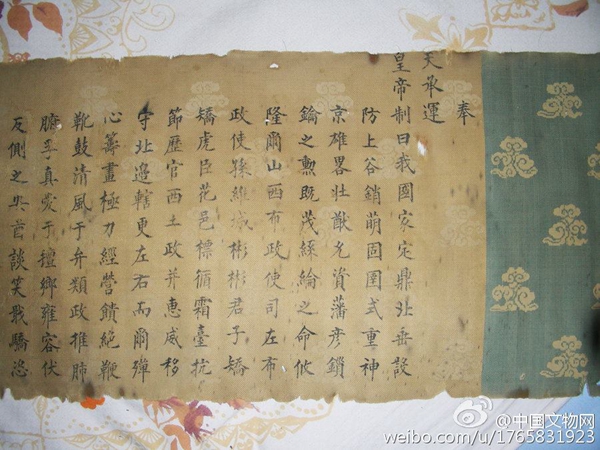 奉
天承運
皇帝制曰我國家定鼎北垂設
防上谷銷萌固圉式重神
京雄畧壯猷允資藩彥鎖
鑰之勲既茂綵綸之命攸
隆爾山西布政使司左布
政使孫維城彬彬君子矯
矯虎臣花邑標循霜臺抗
節歷官西土政并惠威移
守北邊轄更左右而爾殫
心籌畫極力經營饋絕鞭
靴鼓清風于弁類政推肺
孚真愛于鄉雍容伏
反側之首談笑戢驕恣
@中国文物网
weibo.com/u/1765831923